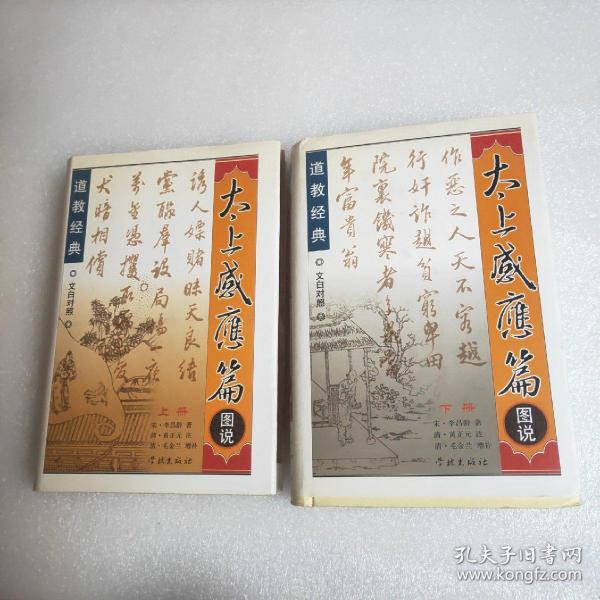 太上感應篇
图说
诱人嫖赌昧天良结
党酿群设局场一夜
犬暗相償
道教经典
文白对照
上册
宋·李昌龄 著
清·黄正元 注
清·毛金兰 增补
学林出版社
太上感應篇
图说
作恶之人天不容越
行奸诈越贫窮卑田
院裏饑寒者
年富貴翁
道教经典
文白对照
下册
宋·李昌龄 著
清·黄正元 注
清·毛金兰 增补
学林出版社
孔夫子旧书网
www.kongfz.com